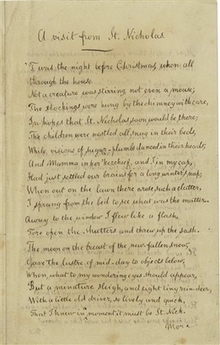 A visit from St. Nicholas
'Twas the night before Christmas, when all
through the house
Not a creature was stirring not even a mouse;
The stockings were hung by the chimney with care,
In hopes that St. Nicholas soon would be there;
The children were nestled all snug in their beds,
While visions of sugar-plumbs danced in their heads,
And Mamma in her 'kerchief, and I in my cap,
Had just settled our brains for a long winter's nap;
When out on the lawn there arose such a clatter,
I sprang from the bed to see what was the matter.
Away to the window I flew like a flash,
Tore open the shutters and threw up the sash.
The moon on the breast of the new-fallen snow,
Gave the lustre of mid-day to objects below,
When, what to my wondering eyes should appear,
But a miniature sleigh, and eight tiny rein-deer,
With a little old driver, so lively and quick,
That I knew in a moment it must be St. Nick.
More